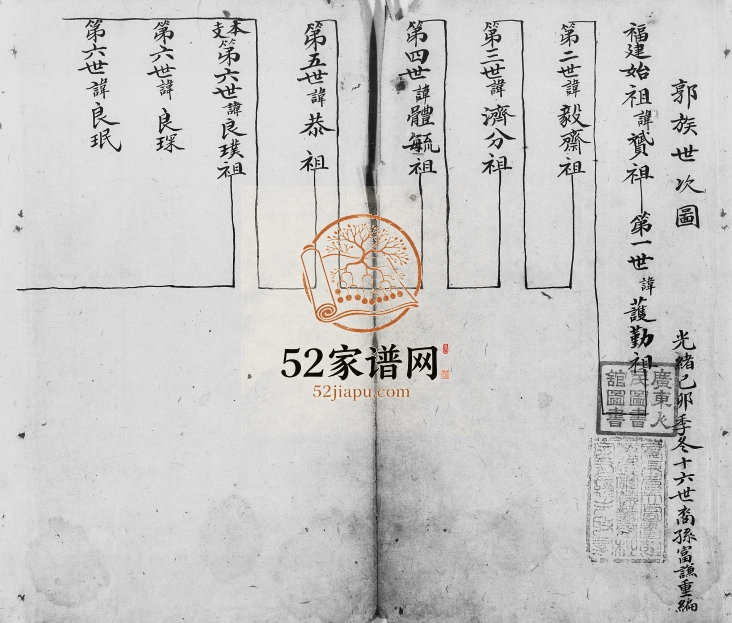 郭族世次圖
光緒己卯季冬十六世裔孫富謙重編
福建始祖諱贊祖
第一世諱護勤祖
第二世諱毅齋祖
第三世諱濟分祖
第四世諱體毓祖
第五世諱恭祖
本支第六世諱良璞祖
第六世諱良琛
第六世諱良珉
廣東人
民圖書
館圖書
52家谱网
52jiapu.com